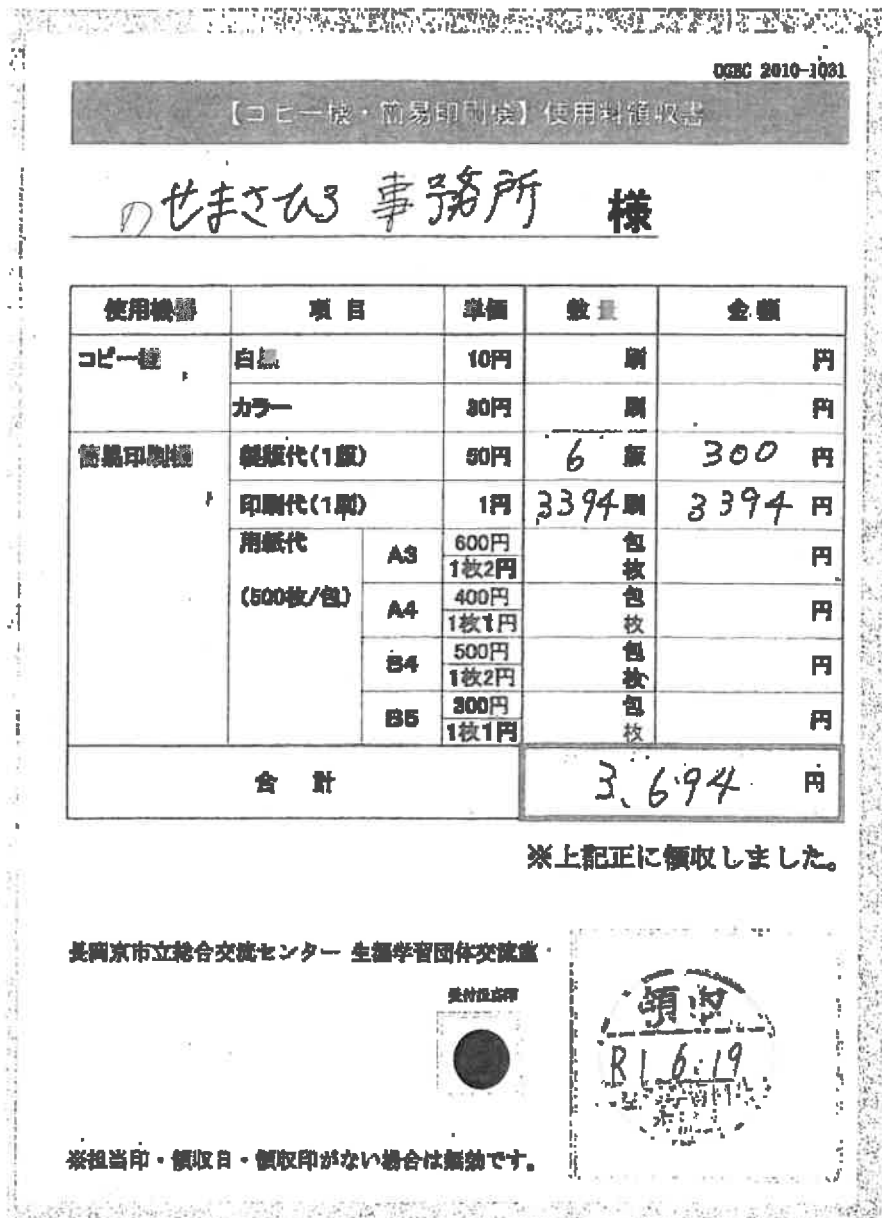 OGEC 2010-1031
【コピー機・簡易印刷機】使用料領収書
のせまさひろ 事務所 様
使用機器 項目 単価 数量 金額
コピー機 白黒 10円 刷 円
カラー 30円 刷 円
簡易印刷機 製版代(1版) 50円 6 版 300 円
印刷代(1刷) 1円 3394 刷 3394 円
用紙代 (500枚/包) A3 600円 包 円
1枚2円 枚
A4 400円 包 円
1枚1円 枚
B4 500円 包 円
1枚2円 枚
B5 300円 包 円
1枚1円 枚
合計 3,694 円
※上記正に領収しました。
長岡京市立総合交流センター 生涯学習団体交流室
受付担当印
領収
R1.6.19
※担当印・領収日・領収印がない場合は無効です。